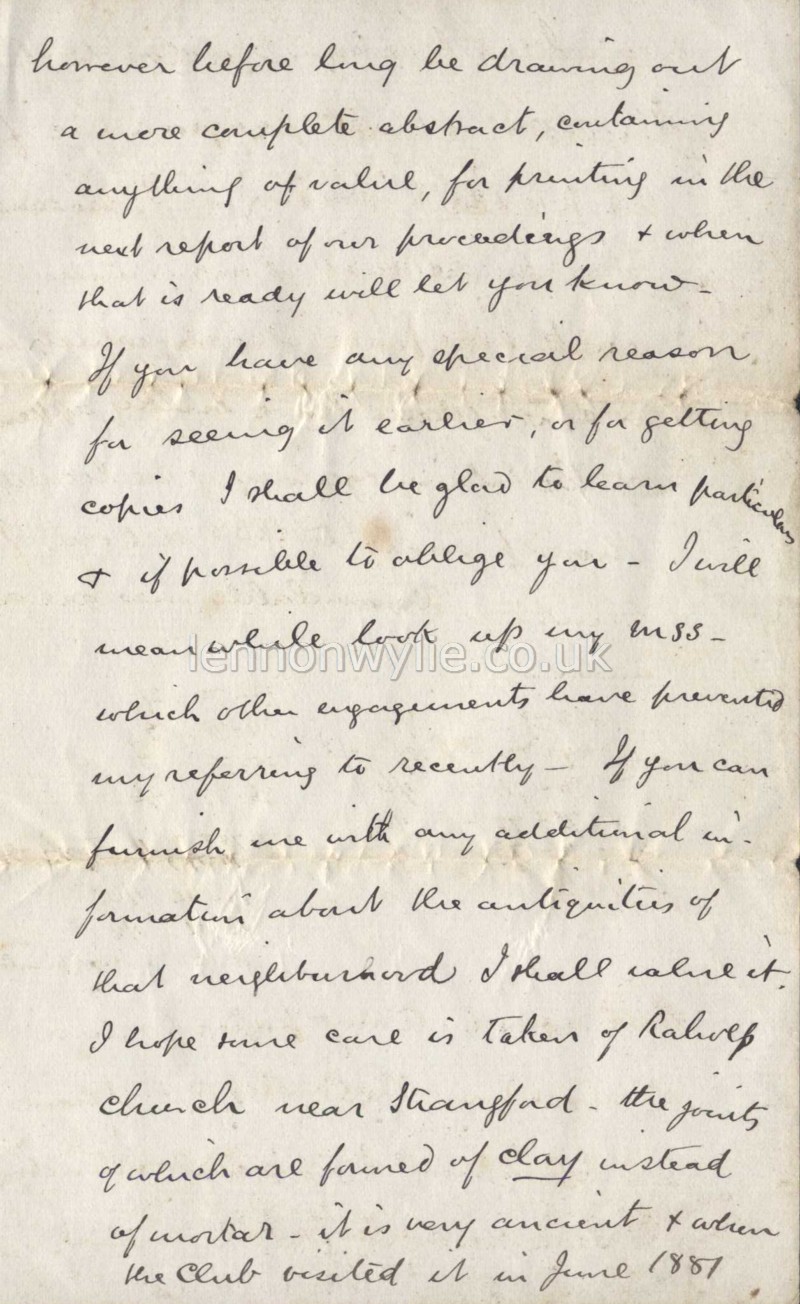 however before long be drawing out
a more complete abstract, containing
anything of value, for printing in the
next report of our proceedings & when
that is ready will let you know -
If you have any special reason
for seeing it earlier, or for getting
copies I shall be glad to learn particulars
& if possible to oblige you - I will
meanwhile look up my MSS -
lennonwylie.co.uk
which other engagements have prevented
my referring to recently - If you can
furnish me with any additional in-
formation about the antiquities of
that neighbourhood I shall value it.
I hope some care is taken of Raholp
church near Strangford - the joints
of which are formed of clay instead
of mortar - it is very ancient & when
the Club visited it in June 1881